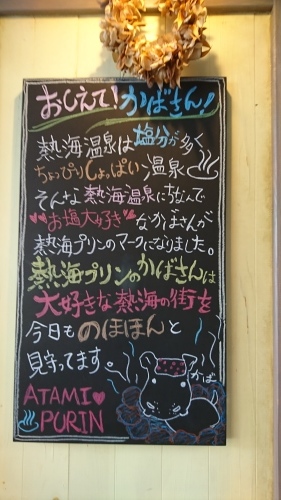 おしえて!かばさん!
熱海温泉は塩分が多く
ちょっぴりしょっぱい温泉
そんな熱海温泉にちなんで
お塩大好きなかばさんが
熱海プリンのマークになりました。
熱海プリンのかばさんは
大好きな熱海の街を
今日ものほほんと
見守ってます。
かば
ATAMI
PURIN